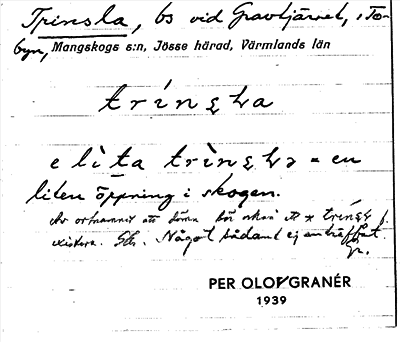 Trinsla, bs vid Gravtjärnet, i To-
byn, Mangskogs s:n, Jösse härad, Värmlands län
trínsla
e lìta trìnsla = en
liten öppning i skogen.
Av ortnamnet att döma bör också ett * f.
existera. Något sådant ej anträffat.
PER OLOV GRANÉR
1939